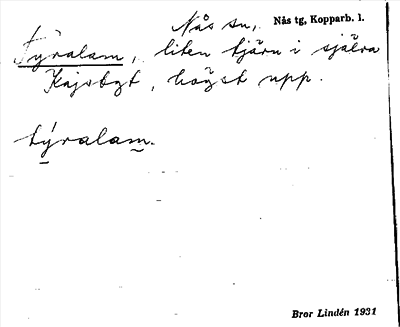 Nås sn, Nås tg, Kopparb. l.
Tyralam, liten tjärn i själva
Kajsbgt, högst upp.
týralam.
Bror Lindén 1931